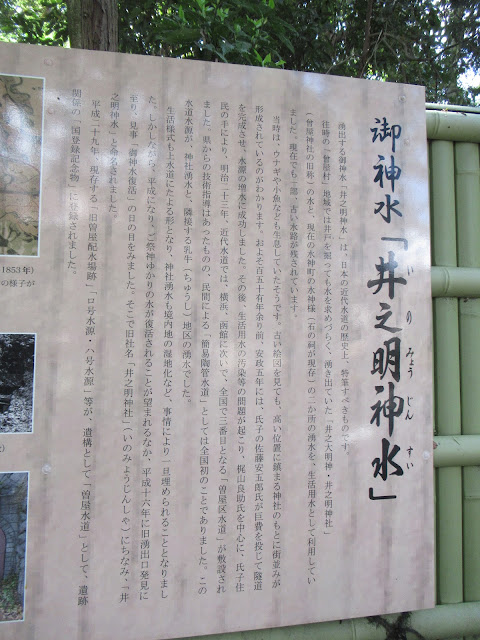 御神水「井之明神水」
いのみょうじんすい
湧出する御神水「井之明神水」は、日本の近代水道の歴史上、特筆すべきものです。
往時の「曽屋村」地域では井戸を掘っても水を求めづらく、湧き出ていた「井之大明神・井之明神社」
(曽屋神社の旧称)の水と、現在の水神町の水神様(石の祠が現存)の二か所の湧水を、生活用水として利用してい
ました。現在でも一部、古い水路が残されています。
当時は、ウナギや小魚なども生息していたそうです。古い絵図を見ても、高い位置に鎮まる神社のもとに街並みが
形成されているのがわかります。およそ百五十有年余り前、安政五年には、氏子の佐藤安五郎氏が巨費を投じて隧道
を完成させ、水源の増水に成功しました。その後、生活用水の汚染等の問題が起こり、梶山良助氏を中心に、氏子住
民の手により、明治二十三年、近代水道では、横浜、函館に次いで、全国で三番目となる「曽屋区水道」が敷設され
ました。県からの技術指導はあったものの、民間による「簡易陶管水道」としては全国初のことでありました。この
水道水源が、神社湧水と、隣接する乳牛(ちゅうし)地区の湧水でした。
生活様式も上水道にたよる形となり、神社湧水も境内地の湿地化など、事情により一旦埋められることとなりまし
た。しかしながら、平成になり、ご祭神ゆかりの水が復活されることが望まれるなか、平成十六年に旧湧出口発見に
至り、見事「御神水復活」の日の目をみました。そこで旧社名「井之明神社」(いのみょうじんしゃ)にちなみ、「井
之明神水」と命名されました。
平成二十九年、現存する「旧曽屋配水場跡」、「ロ号水源・ハ号水源」等が、遺構として「曽屋水道」として、遺跡
関係の「国登録記念物」に登録されました。
1853年)
の様子が